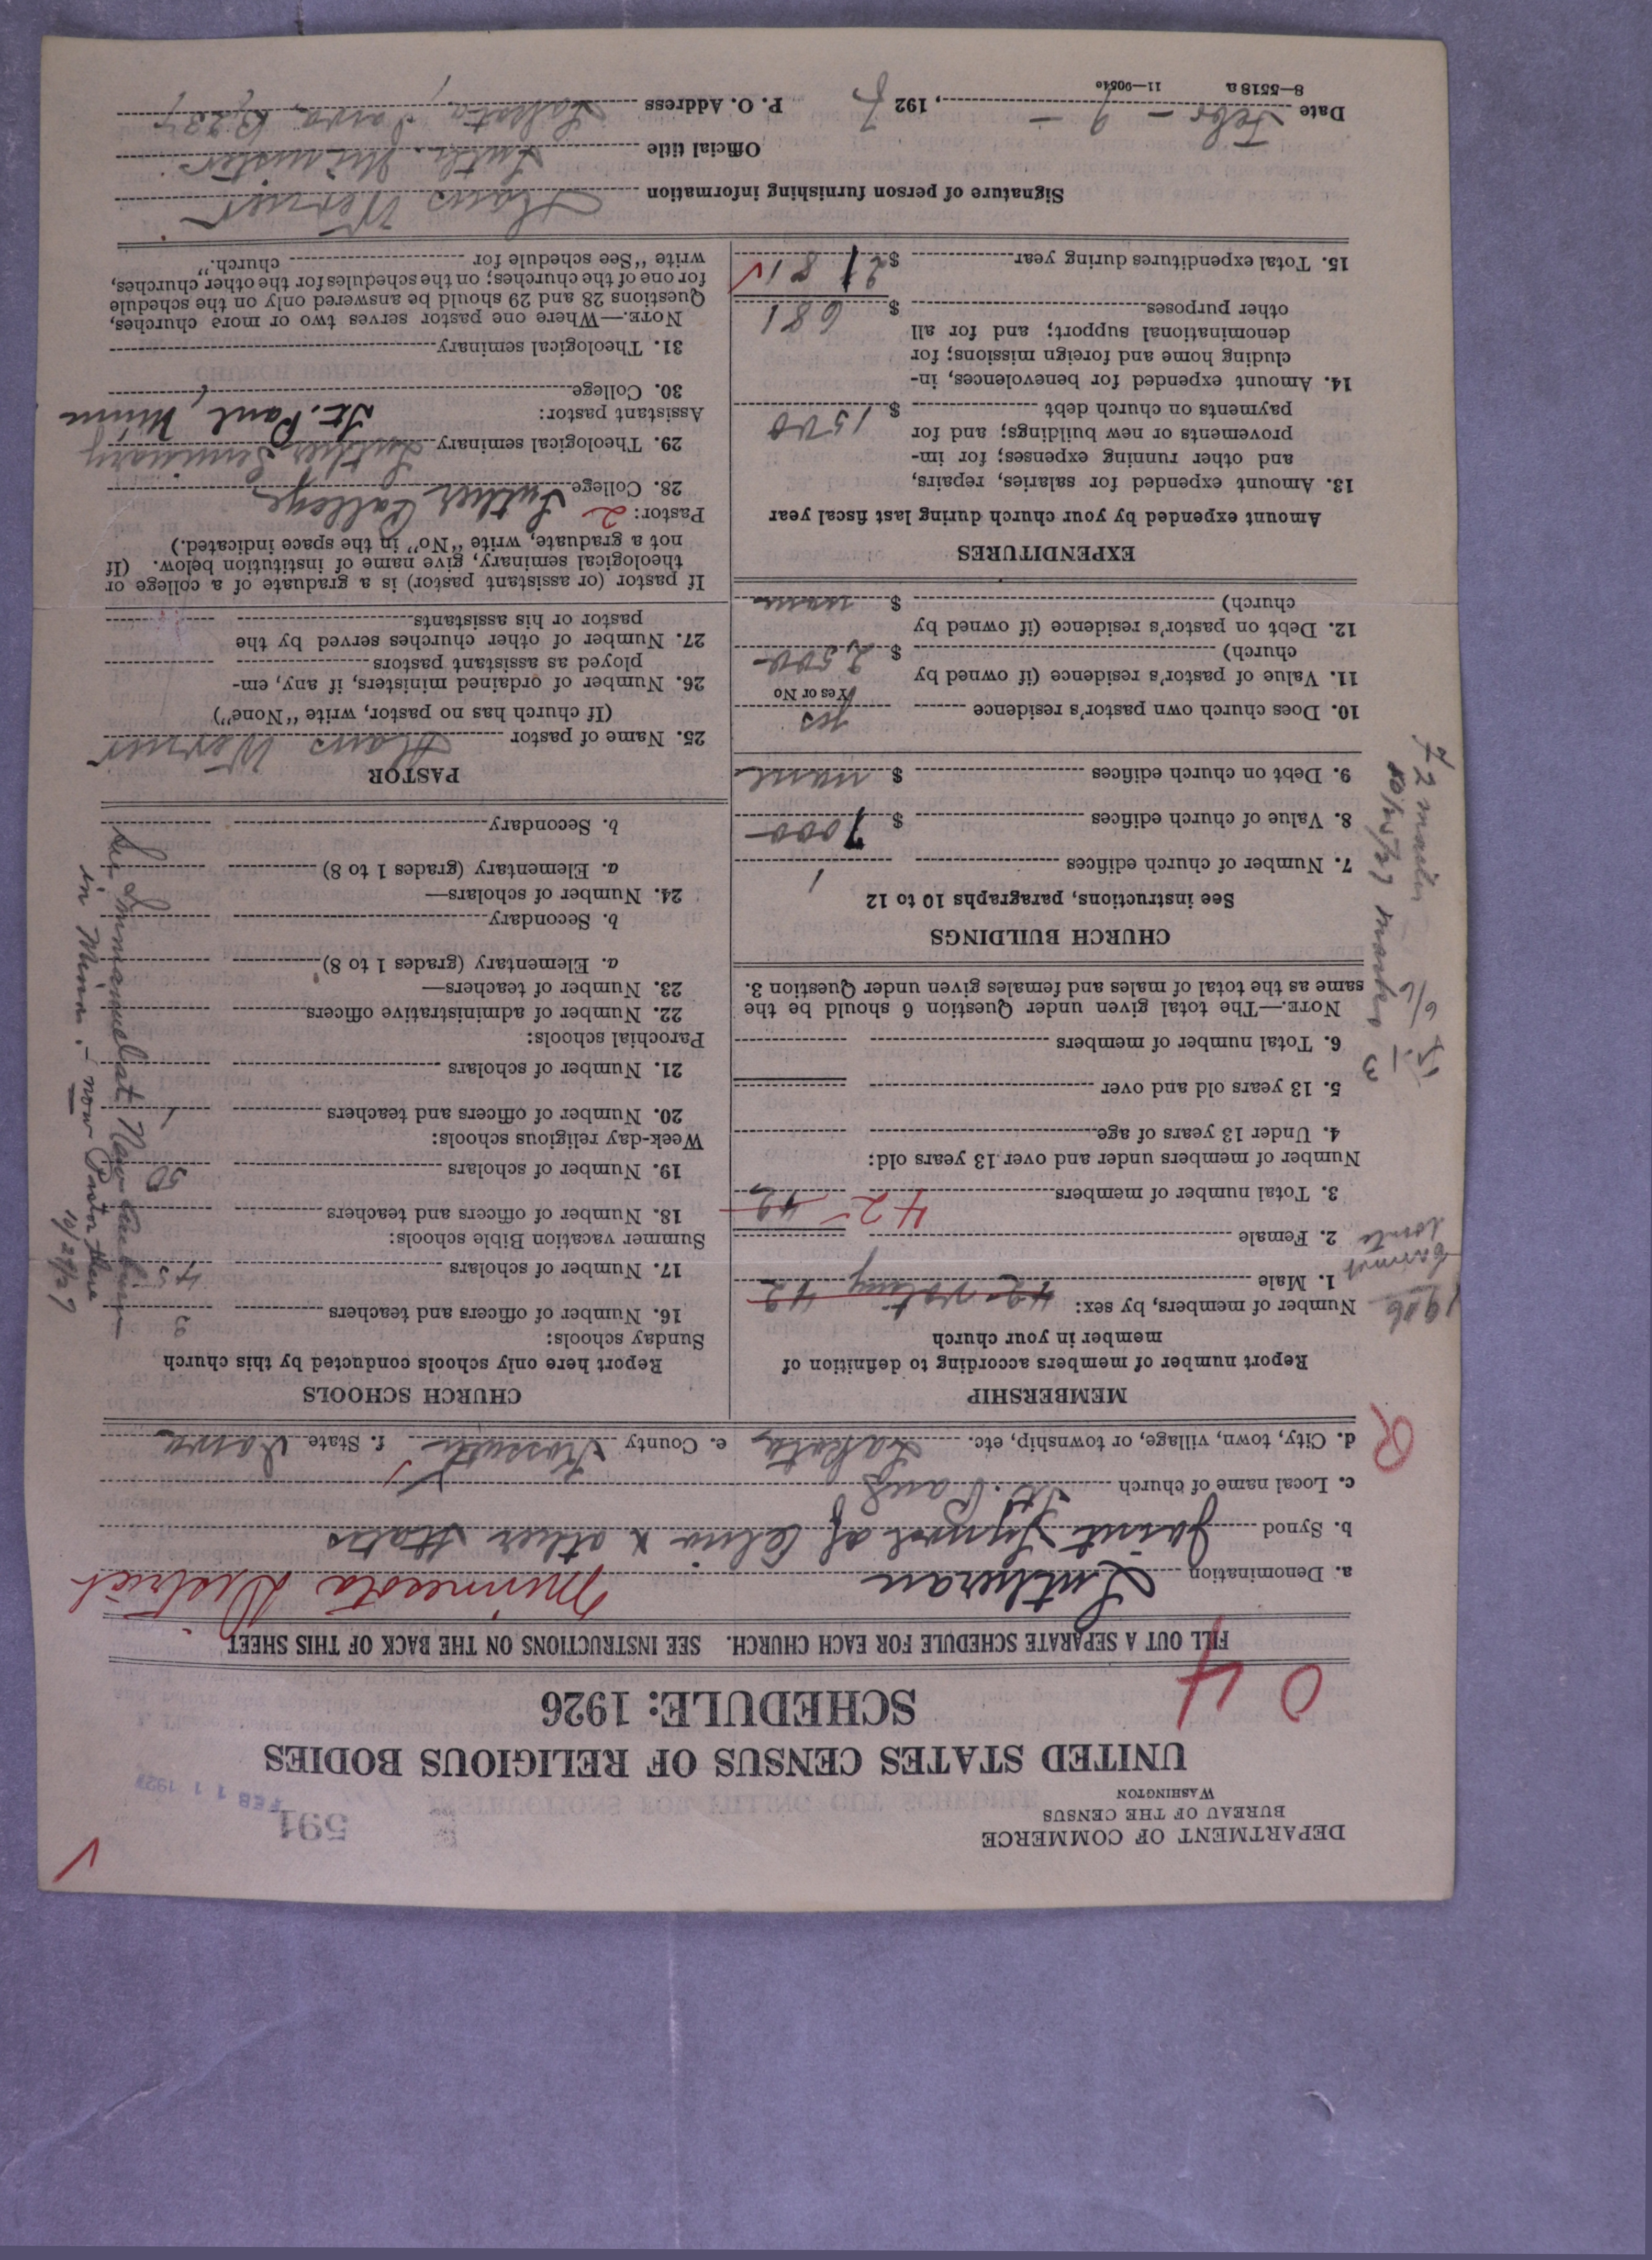 DEPARTMENT OF COMMERCE
BUREAU OF THE CENSUS
WASHINGTON
591
FEB 11 1927
UNITED STATES CENSUS OF RELIGIOUS BODIES
SCHEDULE: 1926
0 4
FILL OUT A SEPARATE SCHEDULE FOR EACH CHURCH. SEE INSTRUCTIONS ON THE BACK OF THIS SHEET
a. Denomination Lutheran Minnesota District
b. Synod Joint Synod of Ohio & other States
c. Local name of church St. Paul
d. City, town, village, or township, etc. Lakota e. County Kossuth f. State Iowa
MEMBERSHIP
Report number of members according to definition of
member in your church
Number of members, by sex: 42 voting 42
1. Male
2. Female
3. Total number of members 42 42
Number of members under and over 13 years old:
4. Under 13 years of age
5. 13 years old and over
6. Total number of members
NOTE.—The total given under Question 6 should be the
same as the total of males and females given under Question 3.
CHURCH BUILDINGS
See instructions, paragraphs 10 to 12
7. Number of church edifices 1
8. Value of church edifices $ 7000
9. Debt on church edifices $ none
10. Does church own pastor's residence yes
Yes or No
11. Value of pastor's residence (if owned by
church) $ 2500
12. Debt on pastor's residence (if owned by
church) $ none
EXPENDITURES
Amount expended by your church during last fiscal year
13. Amount expended for salaries, repairs,
and other running expenses; for im-
provements or new buildings; and for
payments on church debt $ 1500
14. Amount expended for benevolences, in-
cluding home and foreign missions; for
denominational support; and for all
other purposes $ 681
15. Total expenditures during year $ 2181
CHURCH SCHOOLS
Report here only schools conducted by this church
Sunday schools:
16. Number of officers and teachers 3
17. Number of scholars 45
Summer vacation Bible schools:
18. Number of officers and teachers
19. Number of scholars 50
Week-day religious schools:
20. Number of officers and teachers 1
21. Number of scholars
Parochial schools:
22. Number of administrative officers
23. Number of teachers—
a. Elementary (grades 1 to 8)
b. Secondary
24. Number of scholars—
a. Elementary (grades 1 to 8)
b. Secondary
in Minn. - now Pastor there
10/27/27
PASTOR
25. Name of pastor Hans Werner
(If church has no pastor, write "None")
26. Number of ordained ministers, if any, em-
ployed as assistant pastors
27. Number of other churches served by the
pastor or his assistants
If pastor (or assistant pastor) is a graduate of a college or
theological seminary, give name of institution below. (If
not a graduate, write "No" in the space indicated.)
Pastor: 2
28. College Luther College
29. Theological seminary Luther Seminary
St. Paul, Minn
Assistant pastor:
30. College
31. Theological seminary
NOTE.—Where one pastor serves two or more churches,
Questions 28 and 29 should be answered only on the schedule
for one of the churches; on the schedules for the other churches,
write "See schedule for church."
Signature of person furnishing information Hans Werner
Official title Luth. Minister
Date Febr - 9 -, 1927 P. O. Address Lakota, Iowa,
8—5518 a 11—9051c